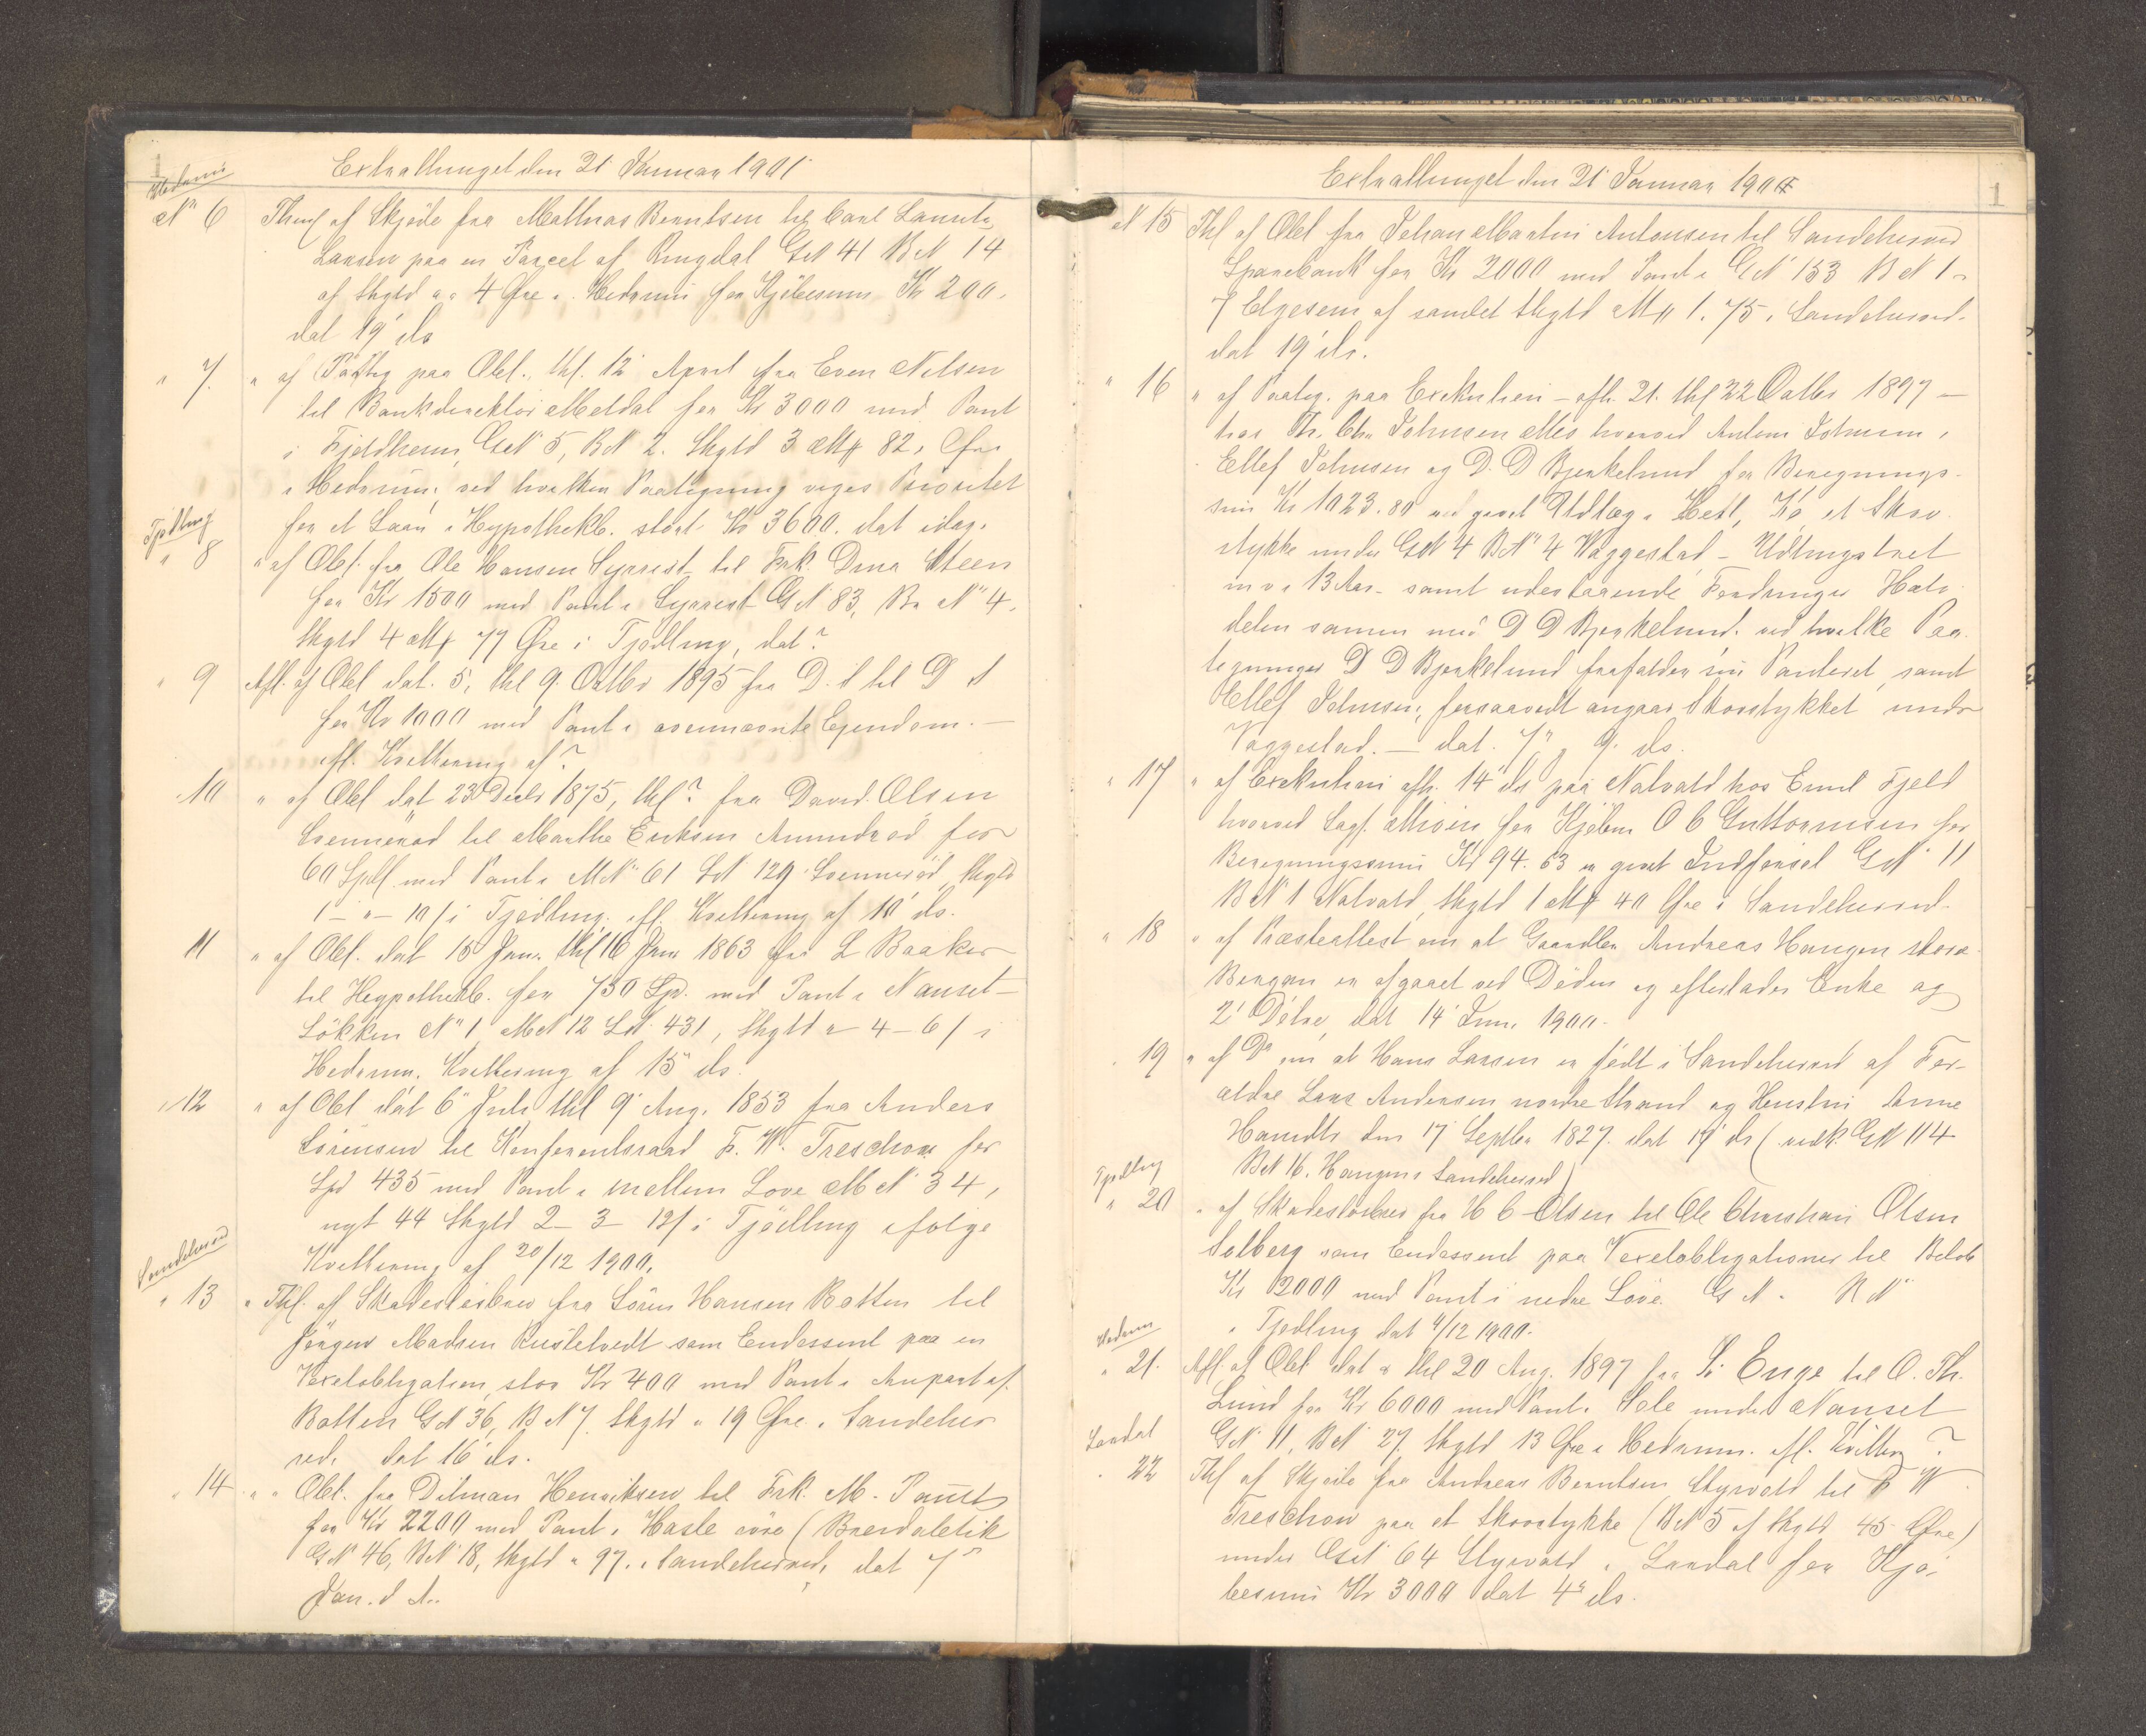 1
Hedrum
Extrathinget den 21 Januar 1901
No 6 Thingl af Skjøde fra Mathias Berntsen til Carl Laurits
Larsen paa en Parcel af Ringdal GN 41 BN 14
af Skyld " " 4 Øre i Hedrum for Kjøbesum Kr 200.
dat 19 ds
" 7. " af Paateg paa Obl. thl. 12 April fra Even Nilsen
til Bankdirektør Meldal for Kr 3000 med Pant
i Fjeldheim, GN 5, BN 2. Skyld 3 Mk 82 Øre
i Hedrum, ved hvilken Paategning viges Prioritet
for et Laan i Hypothekb. stort Kr 3600. dat idag.
Tjølling
" 8 " af Obl. fra Ole Hansen Syrrist til Frk. Dina Steen
for Kr 1500 med Pant i Syrrist GN 83, Br N 4,
Skyld 4 Mk 77 Øre i Tjølling, dat?
" 9 Afl. af Obl dat. 5, thl 9. Octbr 1895 fra D. S til D S
for Kr 1000 med Pant i ovennævnte Ejendom. —
ifl. Kvittering af?
" 10 " af Obl dat 23 Decbr 1875, thl? fra David Olsen
Svennerød til Marthe Eriksen Amundrød for
60 Spdl med Pant i MN 61 LN 129 Svennerød, Skyld
1 - " - 10 / i Tjølling. ifl. Kvittering af 10 ds.
11 " af Obl. dat 15 Jan. thl 16 Jan 1863 fra L Baaker
til Hypothekb. for 750 Spd. med Pant i Nanset-
Løkken N 1, MN 12 LN 431, Skyld " - 4 - 6 / i
Hedrum. Kvittering af 15 ds.
" 12 " af Obl dat 6 Juli thl 9 Aug. 1853 fra Anders
Sørensen til Konferentsraad F. W. Treschow for
Spd 435 med Pant i mellem Love MN 34,
nyt 44 Skyld 2 - 3 - 12 / i Tjølling ifølge
Kvittering af 20/12 1900.
Sandeherred
" 13 " Thl. af Skadesløsbrev fra Søren Hansen Botten til
Jørgen Madsen Knistetvedt som Endossent paa en
Vexelobligation, stor Kr 400 med Pant i Anpart af
Botten GN 36, BN 7, Skyld " 19 Øre i Sandeher
red, dat 16 ds.
" 14 " " Obl. fra Dilman Henriksen til Frk. M. Paust
for Kr 2200 med Pant i Hasle øvre (Brerdaletik
GN 46, BN 18, Skyld " 97. i Sandeherred, dat 7
Jan. d A.
Extrathinget den 21 Januar 1901
1
N 15 Thl af Obl fra Johan Martin Antonsen til Sandeherred
Sparebank for Kr 2000 med Pant i GN 153 BN 1 -
7 Elgesem af samlet Skyld Mk 1.75 i Sandeherred.
dat 19 ds.
" 16 " af Paateg. paa Exekution - afh. 21. thl 22 Octbr 1897 —
hos Th. Chr Johnsen Moe hvorved Anton Johnsen,
Ellef Johnsen og D. D Bjerkelund for Beregnings-
sum Kr 1023.80 er givet Udlæg i Hest, Kó, et Skov
stykke under GN 4 BN 4 Vaggestad - Udhugstret
m v i 13 Aar - samt udestaaende Fordringer Halv
delen sammen med D D Bjerkelund, ved hvilke Paa
tegninger D D Bjerkelund frafalder sin Panteret, samt
Ellef Johnsen, forsaavidt angaar Skovstykket under
Vaggestad. — dat. 7 " 9. ds.
" 17 " af Exekution afh. 14 ds paa Natvald hos Emil Fjeld
hvorved Sagf. for Kjøbm O C Guttormsen for
Beregningssum Kr 94.53 er givet Indførsel GN 11
BN 1 Natvald, Skyld 1 Mk 40 Øre i Sandeherred.
" 18 " af Præsteattest om at Gaardbr. Andreas Haugen store
Bergan er afgaaet ved Døden og efterlader Enke og
2 Døtre, dat 14 Juni 1900.
" 19 " af Do om at Hans Larsen er født i Sandeherred af For-
ældre Lars Andersen nordre Strand og Hustru Anne
Hansdtr den 17 Septbr 1827. dat 19 ds (vedk. GN 114
BN 16. Haugen i Sandeherred)
Tjølling
" 20 " af Skadesløsbrev fra H C Olsen til Ole Christian Olsen
Solberg som Endossent paa Vexelobligationer til Beløb
Kr 2000 med Pant i nedre Løve. G N " B N "
i Tjølling dat 4/12 1900.
Hedrum
" 21. Afl. af Obl dat & thl 20 Aug. 1897 fra Enge til O. Th.
Lund for Kr 6000 med Pant i Sole under Nanset
GN 11, BN 27, Skyld 13 Øre i Hedrum. ifl. Kvitterg?
Lardal
" 22 Thl af Skjøde fra Andreas Berntsen Styrvold til F W
Treschow paa et Skovstykke (BN 5 af Skyld 45 Øre)
under GN 64 Styrvold i Lardal for Kjø-
besum Kr 3000 dat 4 ds.